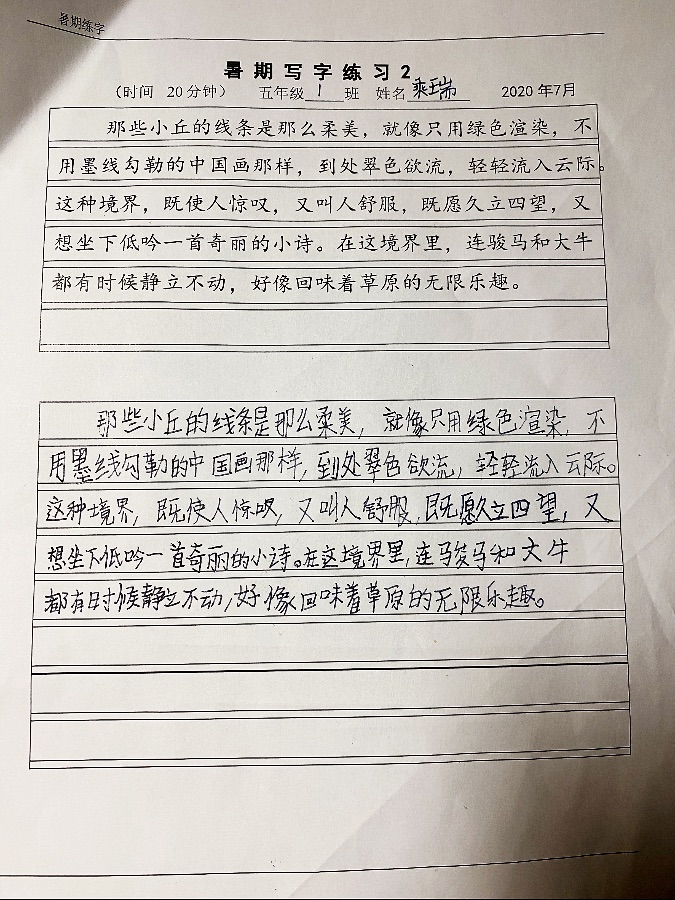 暑期练字
暑期写字练习2
（时间 20分钟） 五年级 1 班 姓名 乘瑞 2020年7月
那些小丘的线条是那么柔美，就像只用绿色渲染，不
用墨线勾勒的中国画那样，到处翠色欲流，轻轻流入云际。
这种境界，既使人惊叹，又叫人舒服，既愿久立四望，又
想坐下低吟一首奇丽的小诗。在这境界里，连骏马和大牛
都有时候静立不动，好像回味着草原的无限乐趣。
那些小丘的线条是那么柔美，就像只用绿色渲染，不
用墨线勾勒的中国画那样，到处翠色欲流，轻轻流入云际。
这种境界，既使人惊叹，又叫人舒服，既愿久立四望，又
想坐下低吟一首奇丽的小诗。在这境界里，连骏马和大牛
都有时候静立不动，好像回味着草原的无限乐趣。